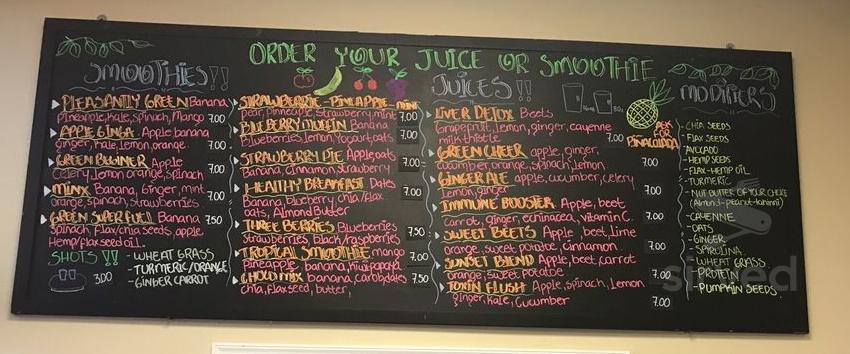 ORDER YOUR JUICE OR SMOOTHIE
SMOOTHIES!!
PLEASANTLY GREEN Banana
Pineapple, Kale, spinach, Mango 7.00
APPLE GINGA. Apple banana
ginger, kale, lemon, orange. 7.00
GREEN BEGINER Apple
Celery, Lemon orange, spinach 7.00
MINX Banana, Ginger, mint
orange, spinach, strawberries 7.00
GREEN SUPER FUEL Banana 7.50
spinach, flax/chia seeds, apple
Hemp/flaxseed oil.
SHOTS!!
3.00
- WHEAT GRASS
- TURMERIC/ORANGE
- GINGER CARROT
STRAWBERRIE - PINEAPPLE - MINK
pear, pineapple, strawberry, mint 7.00
BLUEBERRY MUFFIN Banana
Blueberries, Lemon, Yogourt, oats 7.00
STRAWBERRY PIE Apple, oats
Banana, cinnamon, strawberry 7.00
HEALTHY BREAKFAST Dates
Banana, blueberry, chia/flax 7.00
oats, Almond Butter
THREE BERRIES Blueberries
strawberries, black/raspberries 7.50
TROPICAL SMOOTHIE mango
Pineapple, banana, papaya 7.00
CHOCO MIX banana, carob, dates
chia, flaxseed, butter, 7.50
JUICES!!
LIVER DETOX Beets
Grapefruit, lemon, ginger, cayenne
milk thistle 7.00
GREEN CHEER apple, ginger,
cucumber orange, spinach, lemon 7.00
GINGER ALE apple, cucumber, celery
Lemon, ginger 7.00
IMMUNE BOOSTER Apple, beet,
carrot, ginger, echinacea, vitamin C. 7.00
SWEET BEETS Apple, beet, lime
orange, sweet potatoe, cinnamon 7.00
SUNSET BLEND Apple, beet, carrot
orange, sweet potatoe 7.00
TOXIN FLUSH Apple, spinach, Lemon
ginger, Kale, Cucumber 7.00
ASK
FOR
PINACOLADA
MODIFIERS
- CHIA SEEDS
- FLAX SEEDS
AVOCADO
- HEMP SEEDS
- FLAX-HEMP OIL
- TURMERIC
- NUT BUTTER OF YOUR CHOICE
(Almond-peanut-tahinni)
- CAYENNE
- OATS
- GINGER
- SPIRULINA
- WHEAT GRASS
- PROTEIN
- PUMPKIN SEEDS